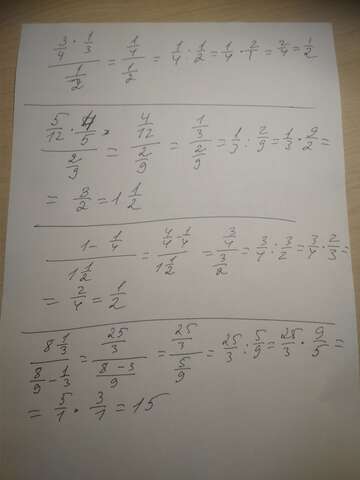 (3/4 · 1/3) / (1/2) = (1/4) / (1/2) = 1/4 : 1/2 = 1/4 · 2/1 = 2/4 = 1/2
(5/12 · 4/5) / (2/9) = (4/12) / (2/9) = (1/3) / (2/9) = 1/3 : 2/9 = 1/3 · 9/2 =
= 3/2 = 1 1/2
(1 - 1/4) / (1 1/2) = (4/4 - 1/4) / (1 1/2) = (3/4) / (3/2) = 3/4 : 3/2 = 3/4 · 2/3 =
= 2/4 = 1/2
(8 1/3) / (8/9 - 1/3) = (25/3) / ((8-3)/9) = (25/3) / (5/9) = 25/3 : 5/9 = 25/3 · 9/5 =
= 5/1 · 3/1 = 15